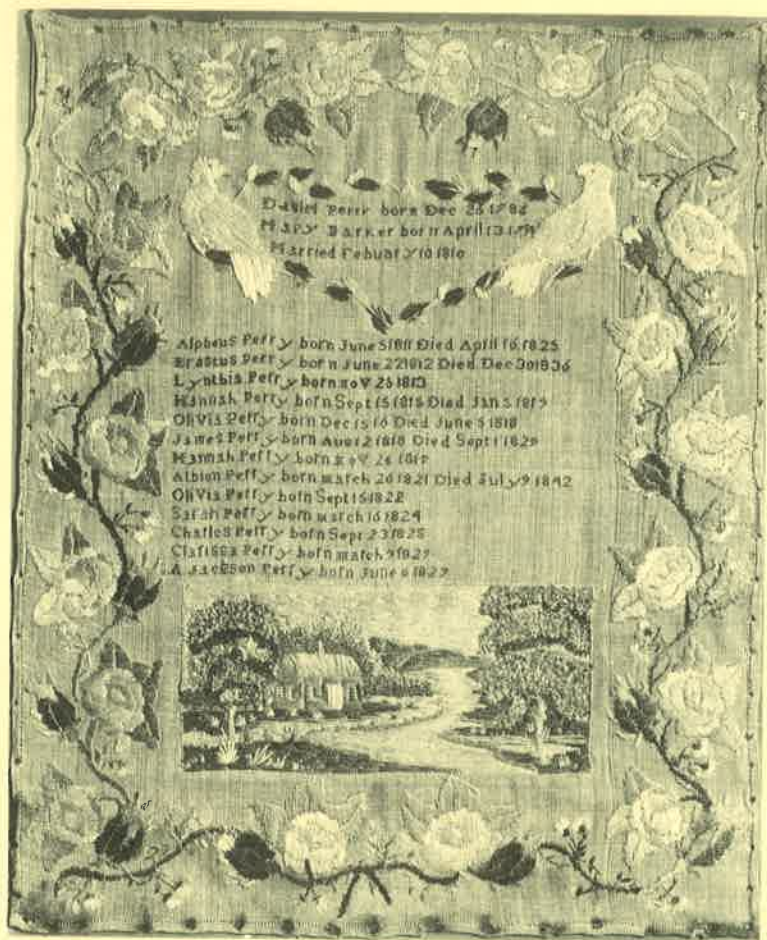 David Perry born Dec 26
Mary Barker born April 13
Married Febuary 10 1810
Alpheus Perry born June 5 1811 Died April 16 1825
Erastus Perry born June 22 1812 Died Dec 30 1836
Lynthia Perry born nov 26 1813
Hannah Perry born Sept 15 1815 Died Jan 5 1819
Olivia Perry born Dec 15 16 Died June 5 1818
James Perry born Augt 2 1818 Died Sept 1 1829
Hannah Perry born nov 26 1819
Albion Perry born march 26 1821 Died July 9 1842
Olivia Perry born Sept 16 1822
Sarah Perry born march 16 1824
Charles Perry born Sept 23 1825
Clarissa Perry born march 9 1827
A Jackson Perry born June 6 1829